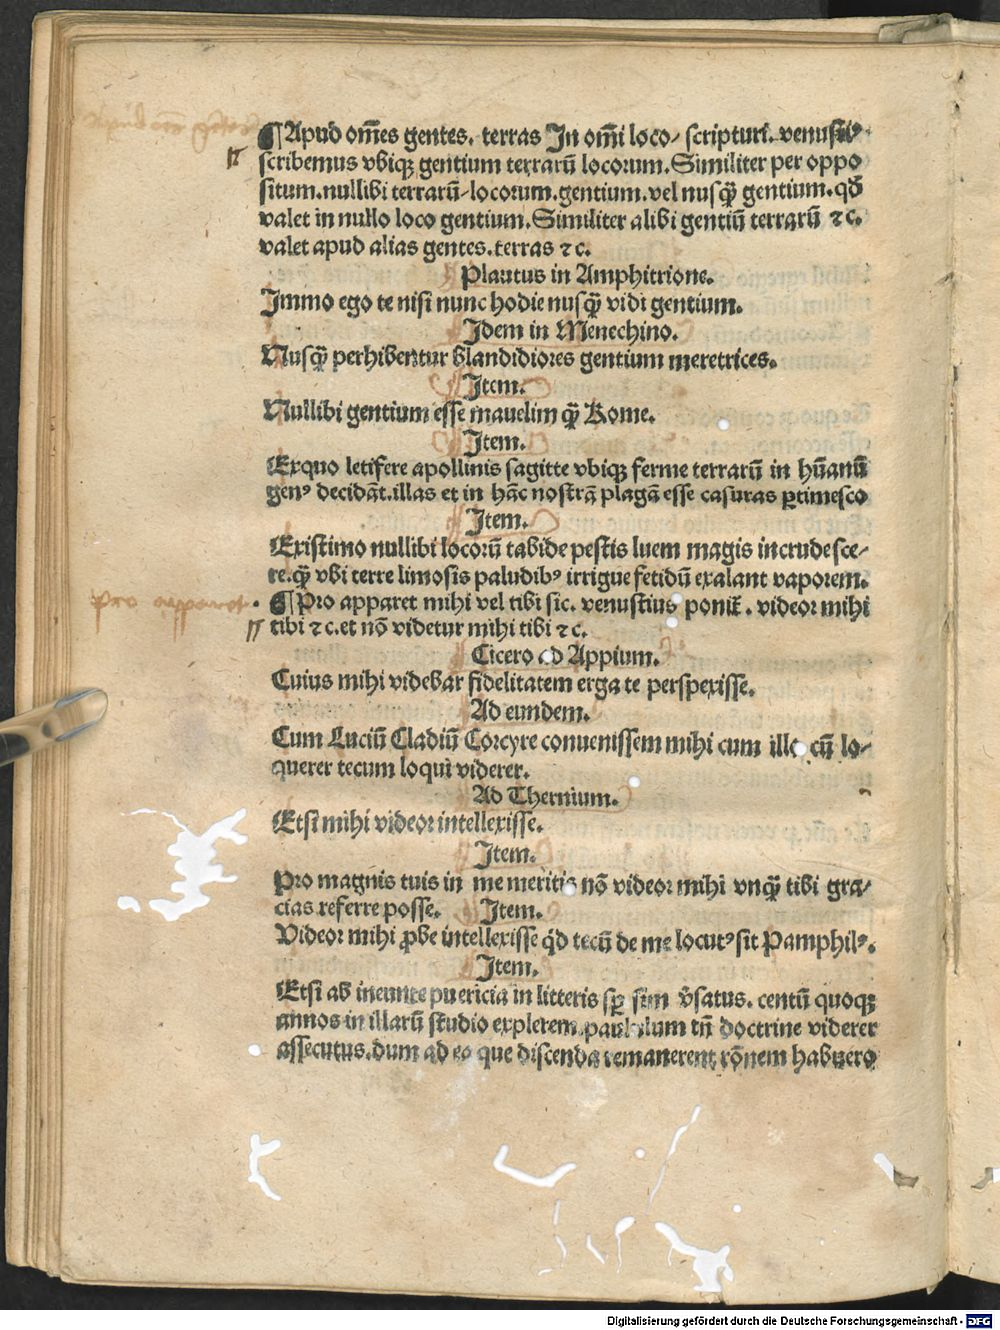 ¶Apud om̄es gentes. terras In om̄i loco/ scripturi. venustiꝰ
scribemus vbiqꝫ gentium terrarū locorum. Similiter per oppo
situm. nullibi terrarū/ locorum. gentium. vel nusq̄ꝫ gentium. qd̄
valet in nullo loco gentium. Similiter alibi gentiū terrarū ⁊ c.
valet apud alias gentes. terras ⁊ c.
Plautus in Amphitrione.
Immo ego te nisi nunc hodie nusq̄ꝫ vidi gentium.
Idem in Menechino.
Nusq̄ꝫ perhibentur blandidiores gentium meretrices.
Item.
Nullibi gentium esse mauelim q̄ꝫ Rome.
Item.
Exquo letifere apollinis sagitte vbiqꝫ ferme terrarū in hūanū
genꝰ decidāt. illas et in hāc nostrā plagā esse casuras ꝑtimesco
Item.
Existimo nullibi locorū tabide pestis luem magis incrudesce/
re. q̄ꝫ vbi terre limosis paludibꝰ irrigue fetidū exalant vaporem.
¶Pro apparet mihi vel tibi sic. venustius ponit̄. videor mihi
tibi ⁊ c. et nō videtur mihi tibi ⁊ c.
Cicero ad Appium.
Cuius mihi videbar fidelitatem erga te perspexisse.
Ad eundem.
Cum Luciū Cladiū Corcyre conuenissem mihi cum illo cū lo/
querer tecum loqui viderer.
Ad Thernium.
Etsi mihi videor intellexisse.
Item.
Pro magnis tuis in me meritis nō videor mihi vnq̄ꝫ tibi gra/
cias referre posse. Item.
Videor mihi ꝓbe intellexisse qd̄ tecū de me locutꝰ sit Pamphilꝰ.
Item.
Etsi ab ineunte puericia in litteris sꝑ sim v̄satus. centū quoqꝫ
annos in illarū studio explerem. paululum tn̄ doctrine viderer
assecutus. dum ad ea que discenda remanerent rōnem habuero
Digitalisierung gefördert durch die Deutsche Forschungsgemeinschaft - DFG